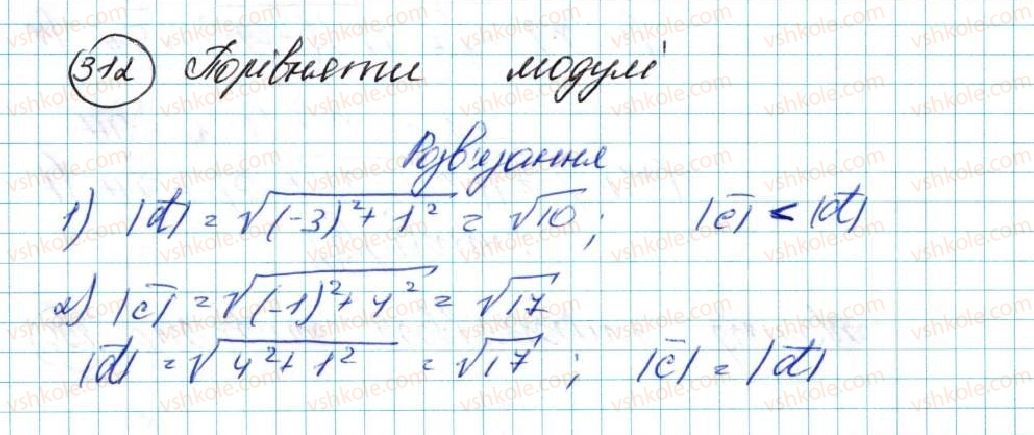 312 Порівняти модулі
Розв'язання
1) |d⃗| = √((-3)² + 1²) = √10; |c̄| < |d⃗|
2) |c̄| = √((-1)² + 4²) = √17
|d⃗| = √(4² + 1²) = √17; |c̄| = |d⃗|
vshkole.com